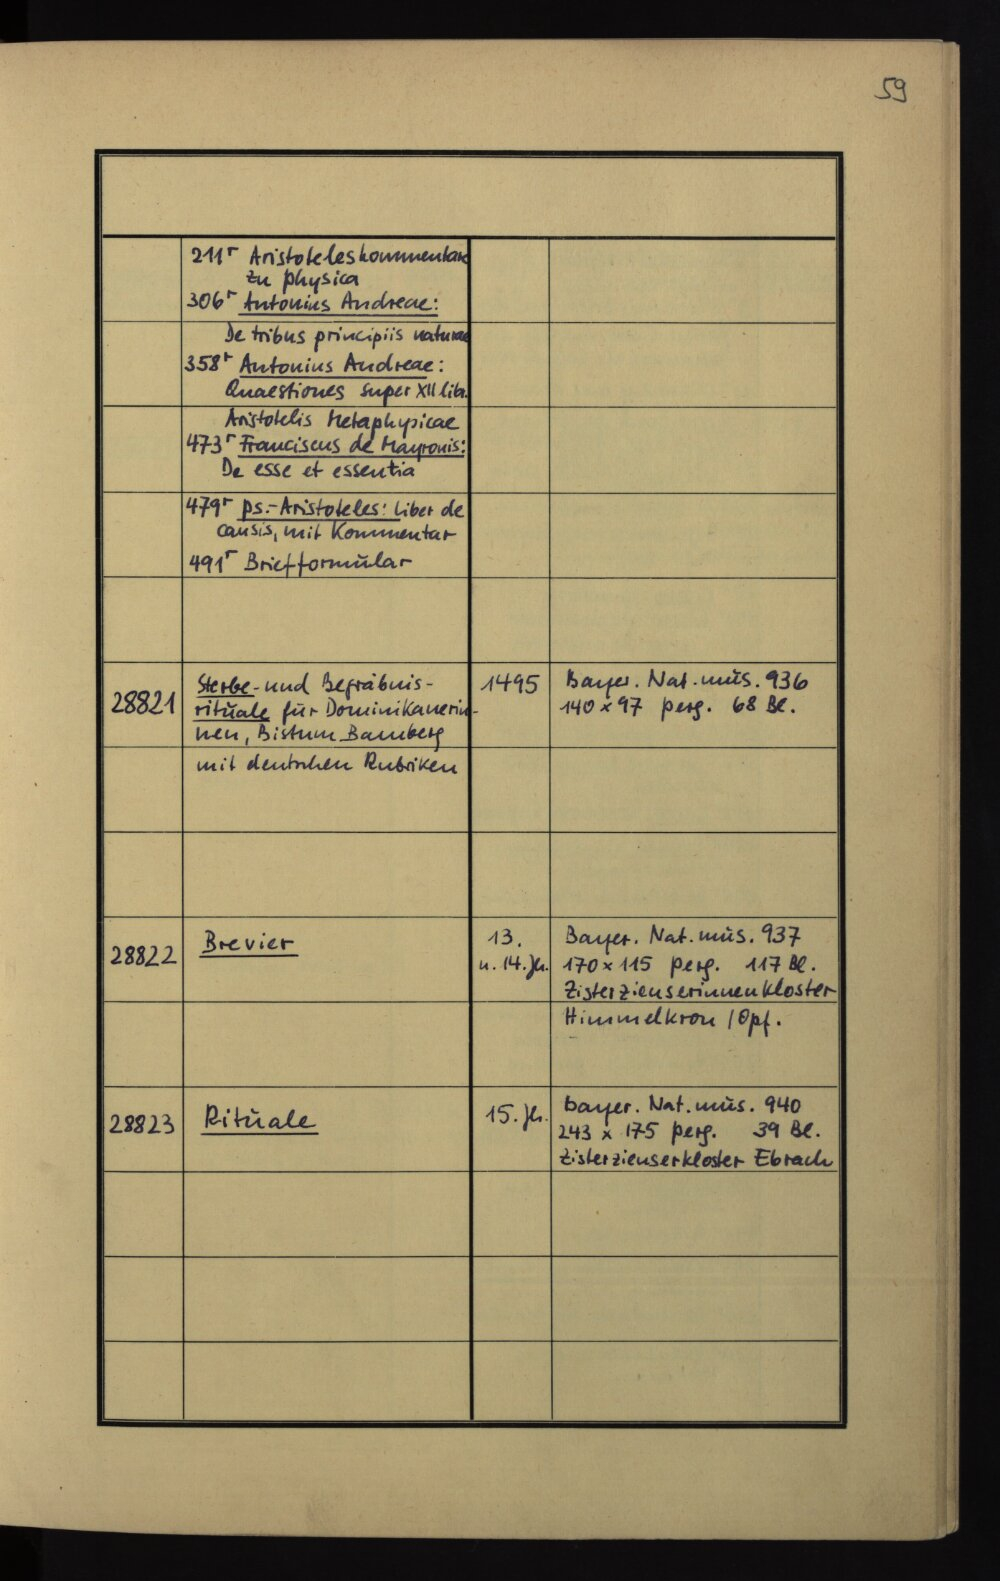 59
211r Aristoteleskommentare
zu physica
306r Antonius Andreae:
De tribus principiis naturae
358r Antonius Andreae:
Quaestiones super XII libr.
Aristotelis Metaphysicae
473r Franciscus de Mayronis:
De esse et essentia
479r ps.-Aristoteles: Liber de
causis, mit Kommentar
491r Briefformular
28821 Sterbe- und Begräbnis- 1495 Bayer. Nat.mus. 936
rituale für Dominikanerin- 140 x 97 perg. 68 Bl.
nen, Bistum Bamberg
mit deutschen Rubriken
28822 Brevier 13. Bayer. Nat.mus. 937
u. 14. Jh. 170 x 115 perg. 117 Bl.
Zisterzienserinnenkloster
Himmelkron / Opf.
28823 Rituale 15. Jh. Bayer. Nat.mus. 940
243 x 175 perg. 39 Bl.
Zisterzienserkloster Ebrach